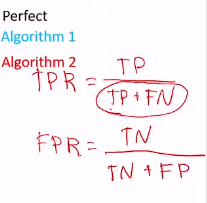 Perfect
Algorithm 1
Algorithm 2
TPR = TP / TP + FN
FPR = TN / TN + FP